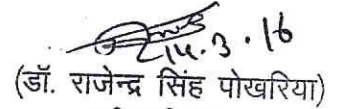 14.3.16
(डॉ. राजेन्द्र सिंह पोखरिया)